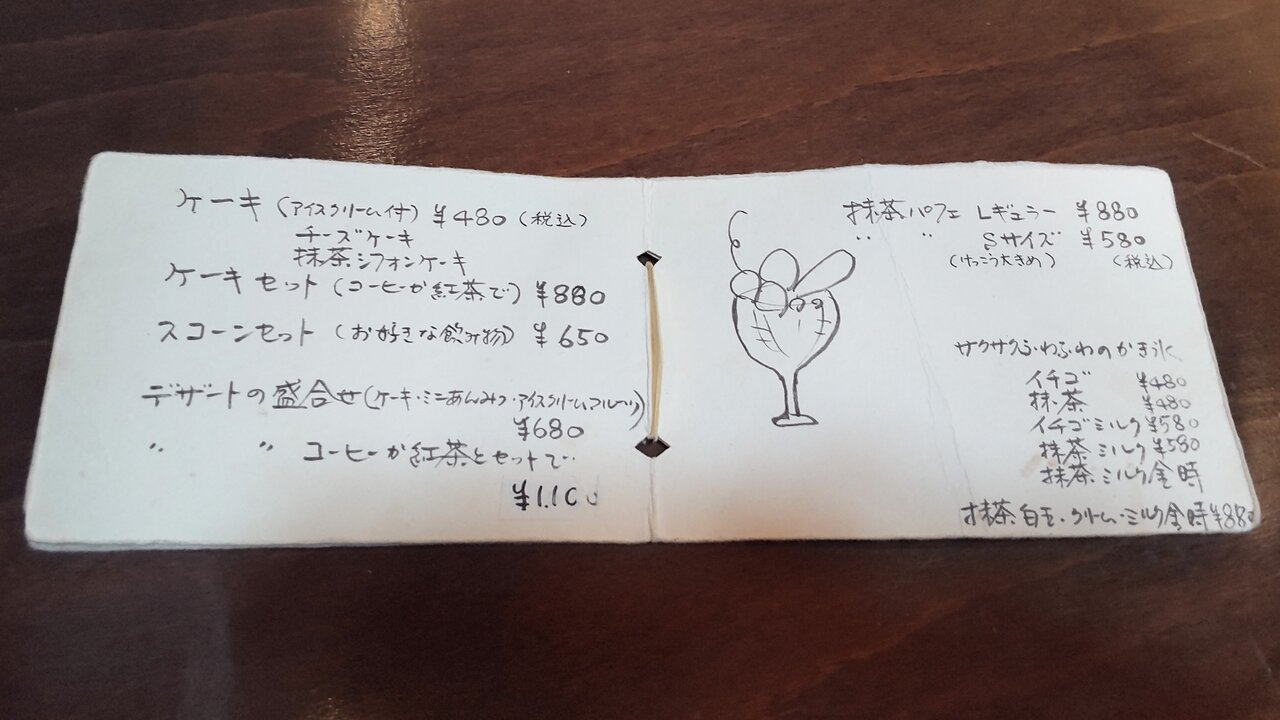 ケーキ (アイスクリーム付) ¥480 (税込)
チーズケーキ
抹茶シフォンケーキ
ケーキセット (コーヒーか紅茶で) ¥880
スコーンセット (お好きな飲み物) ¥650
デザートの盛合せ(ケーキ・ミニあんみつ・アイスクリーム・フルーツ)
¥680
〃 〃 コーヒーか紅茶とセットで‥
¥1.100
抹茶パフェ Lギュラー ¥880
〃 〃 Sサイズ ¥580
(けっこう大きめ) (税込)
サクサクふわふわのかき氷
イチゴ ¥480
抹茶 ¥480
イチゴミルク ¥580
抹茶ミルク ¥580
抹茶ミルク金時
抹茶白玉・クリーム・ミルク金時¥880